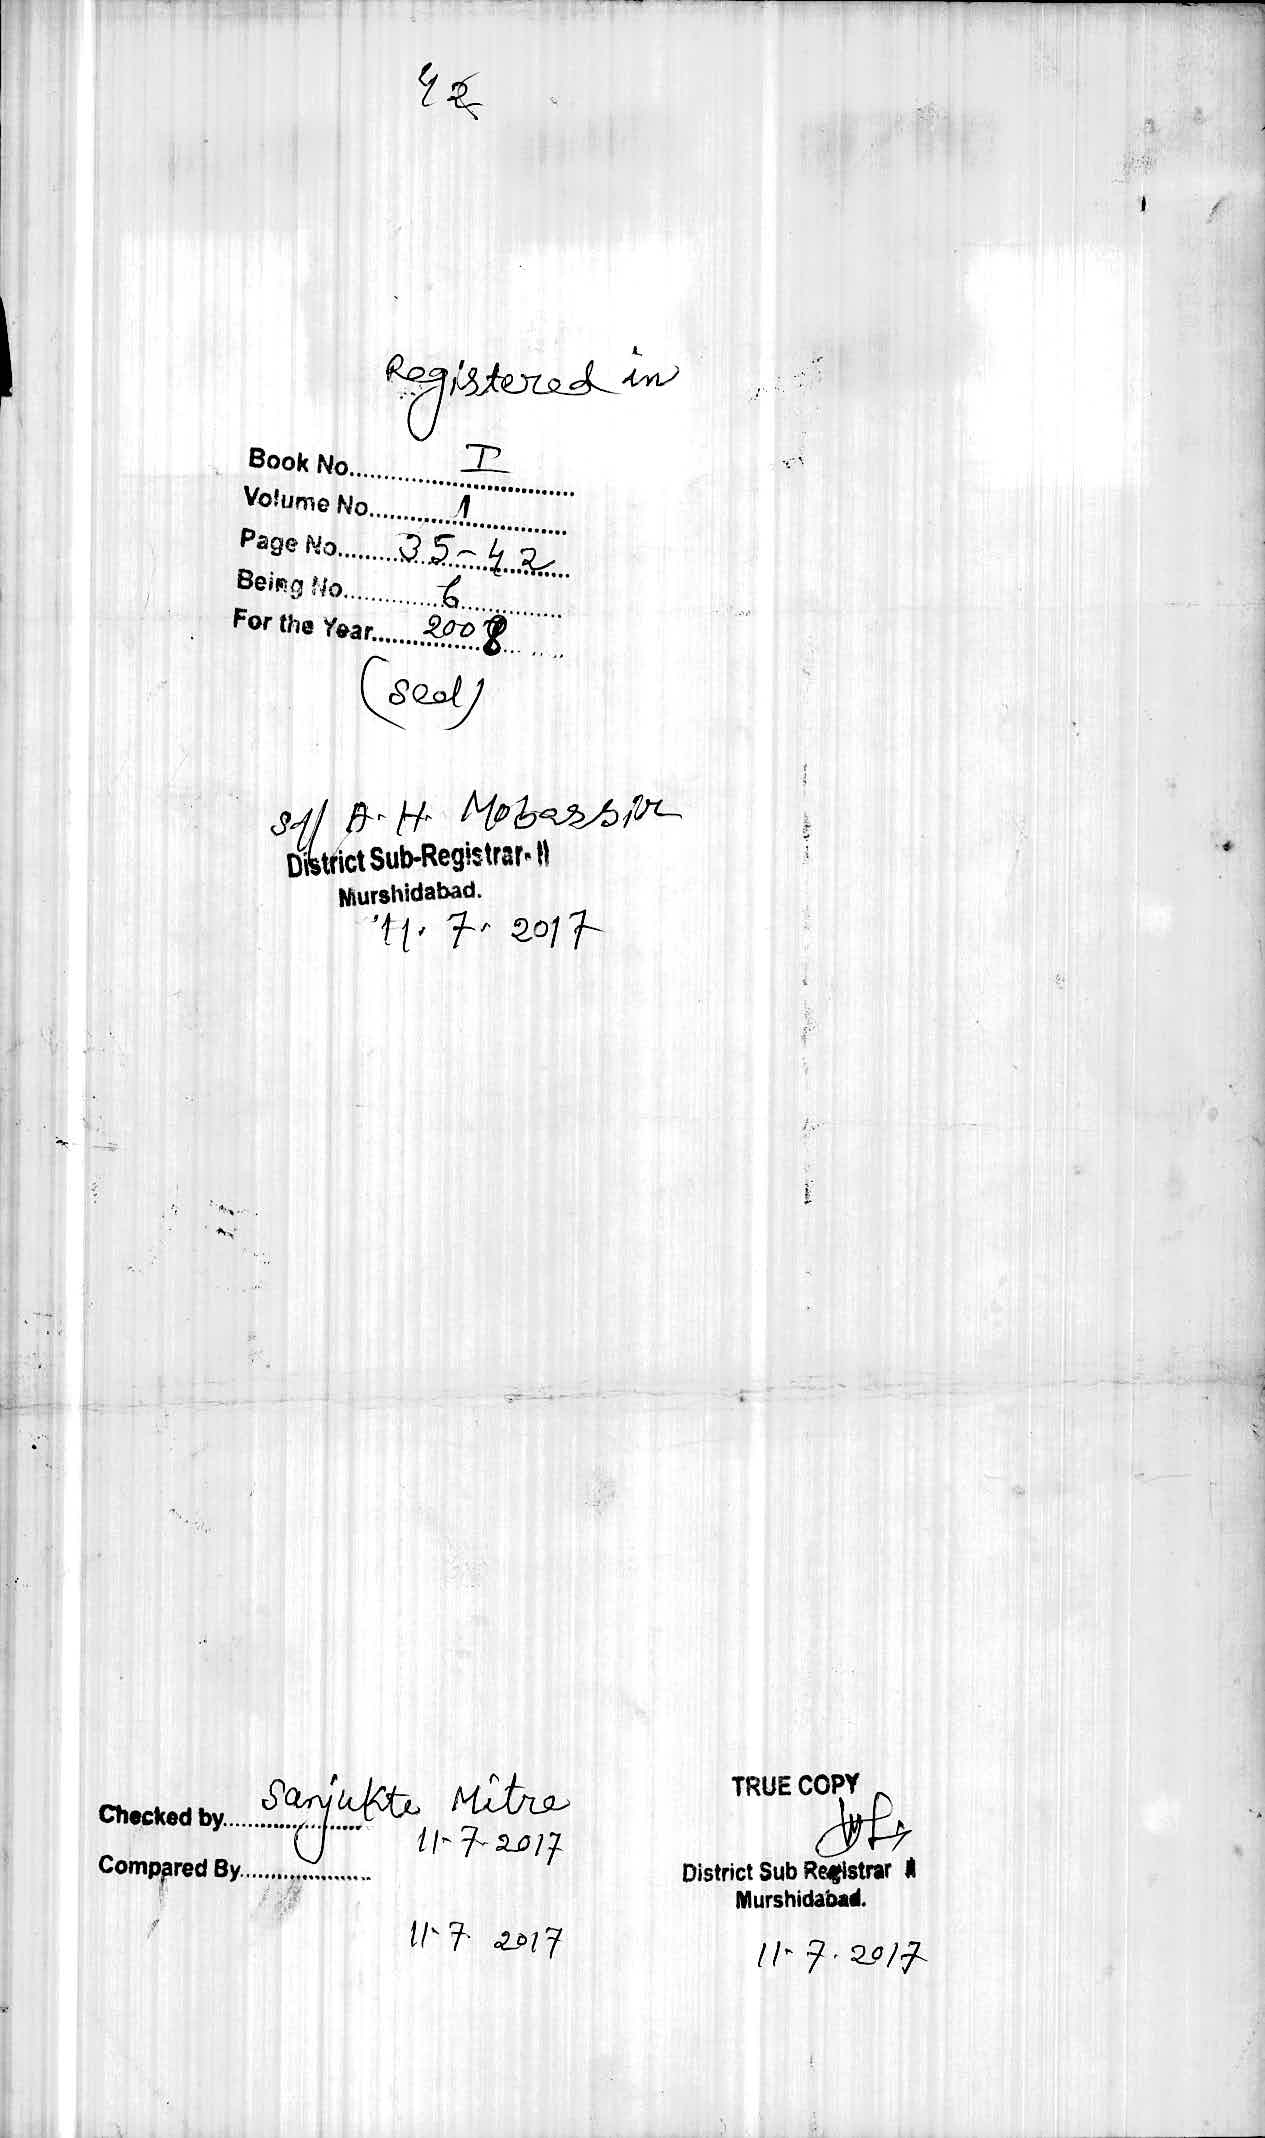 42
Registered in
Book No. I
Volume No. 1
Page No. 35-42
Being No. 6
For the Year 2008
(Seal)
Sd/ A. H. Mobassir
District Sub-Registrar- II
Murshidabad.
11. 7. 2017
Checked by Sanjukta Mitra
11-7-2017
Compared By
11-7. 2017
TRUE COPY
District Sub Registrar
Murshidabad.
11- 7. 2017